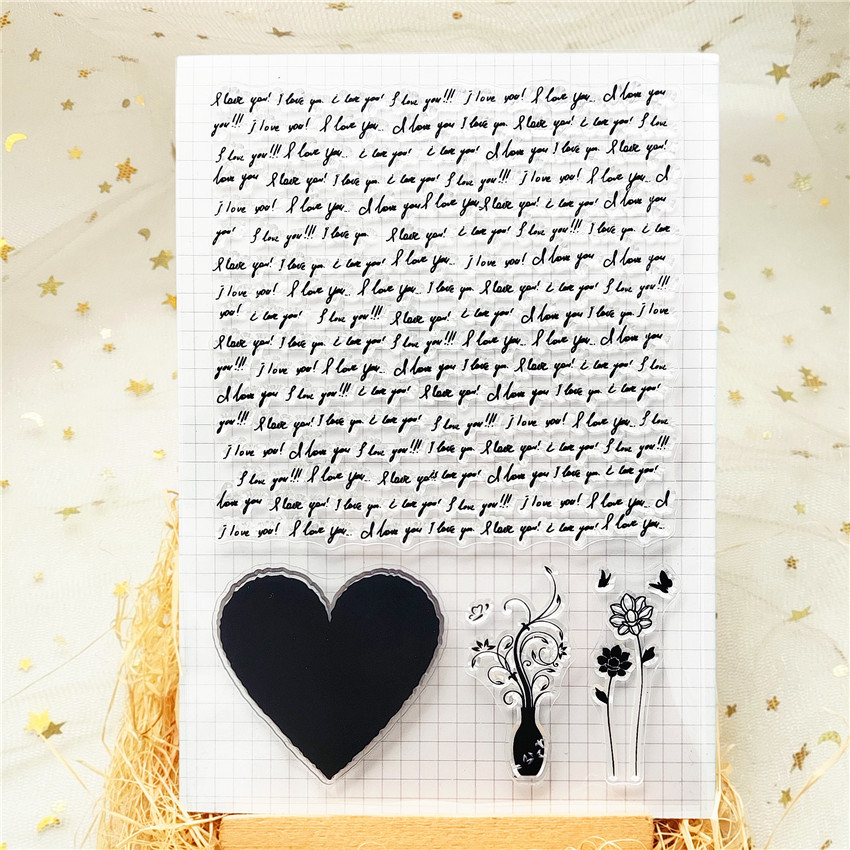 I love you! I love you. i love you! I love you!!! j love you! I love you... I love you
you!!! j love you! I love you... I love you I love you. I love you! i love you! I love
I love you!!! I love you... i love you! i love you! I love you I love you. I love you!
love you I love you! I love you. i love you! I love you!!! j love you! I love you... I
j love you! I love you... I love you I love you... I love you! i love you! I love you
you! I love you!!! I love you. I love you! i love you! I love you!!! I love you. i love
I love you! I love you. i love you! I love you... j love you! I love you I love you
j love you! I love you... I love you... I love you. I love you! i love you! I love you!!!
you! i love you! I love you!!! I love you! i love you! I love you I love you. j love
I love you! I love you. i love you! I love you!!! I love you... I love you... I love you
you!!! j love you! I love you... I love you I love you. I love you! i love you! I love
I love you I love you!!! i love you! I love you! I love you I love you. i love you!
you!!! I love you! I love you. i love you! I love you!!! j love you! I love you... I love
j love you! I love you I love you!!! I love you. I love you! i love you! I love you!!!
I love you!!! I love you... I love you! i love you! I love you I love you. i love you!
love you I love you! I love you. i love you! I love you!!! j love you! I love you... I
j love you! I love you... I love you I love you. I love you! i love you! I love you...